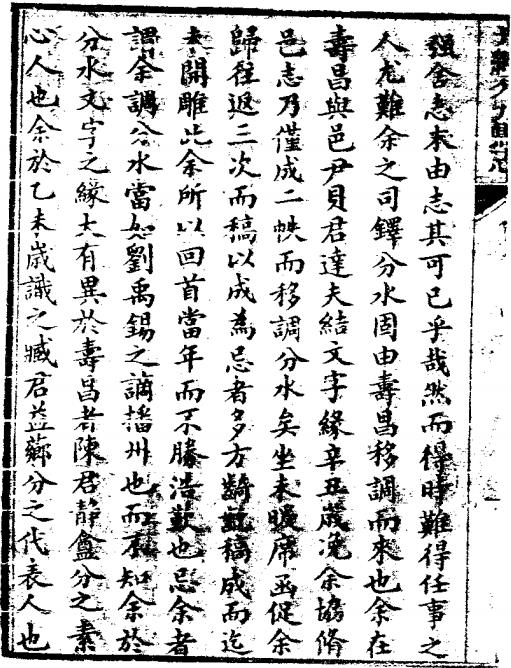 強舍志末由志其可已乎哉然而得時難得任事之
人尤難余之司鐸分水固由壽昌移調而來也余在
壽昌與邑尹貝君達夫結文字緣辛丑歲浼余協脩
邑志乃僅成二帙而移調分水矣坐未暖席函促余
歸往返二次而稿以成為忌者多方齮齕稿成而迄
未開雕此余所以回首當年而不勝浩歎也忌余者
謂余調分水當如劉禹錫之謫播州也而不知余於
分水文字之緣大有異於壽昌者陳君靜盦分之素
心人也余於乙未歲識之臧君益蘇分之代表人也